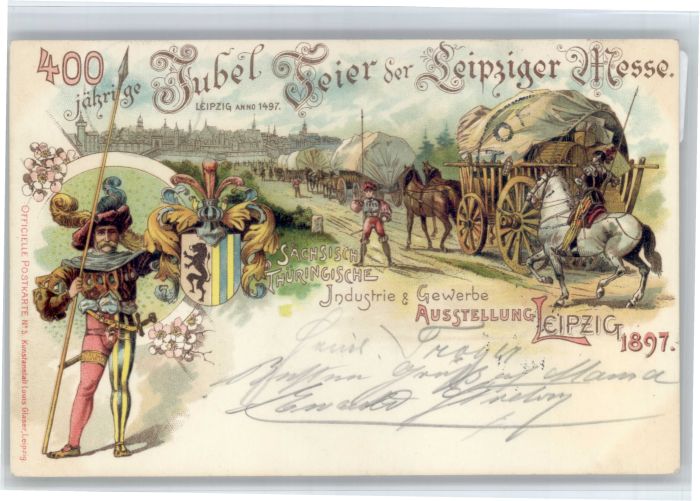 400 jährige Jubel Feier der Leipziger Messe.
LEIPZIG ANNO 1497.
SÄCHSISCH
THÜRINGISCHE
Industrie & Gewerbe
AUSSTELLUNG LEIPZIG
1897.
OFFICIELLE POSTKARTE No 5. Kunstanstalt Louis Glaser, Leipzig.
Besten Mama
Ewald